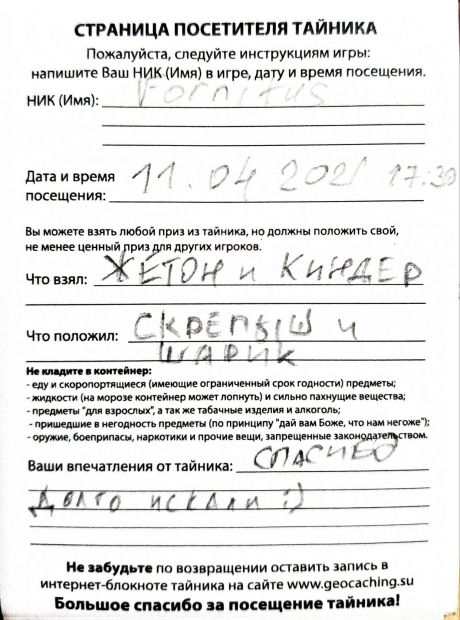 СТРАНИЦА ПОСЕТИТЕЛЯ ТАЙНИКА
Пожалуйста, следуйте инструкциям игры:
напишите Ваш НИК (Имя) в игре, дату и время посещения.
НИК (Имя): Fornitus
Дата и время 11.04 2021 17:39
посещения:
Вы можете взять любой приз из тайника, но должны положить свой,
не менее ценный приз для других игроков.
Что взял: ЖЕТОН и КИНДЕР
Что положил: СКРЕПЫШ и
ШАРИК
Не кладите в контейнер:
- еду и скоропортящиеся (имеющие ограниченный срок годности) предметы;
- жидкости (на морозе контейнер может лопнуть) и сильно пахнущие вещества;
- предметы "для взрослых", а так же табачные изделия и алкоголь;
- пришедшие в негодность предметы (по принципу "дай вам Боже, что нам негоже");
- оружие, боеприпасы, наркотики и прочие вещи, запрещенные законодательством.
Ваши впечатления от тайника: СПАСИБО
Долго искали :)
Не забудьте по возвращении оставить запись в
интернет-блокноте тайника на сайте www.geocaching.su
Большое спасибо за посещение тайника!